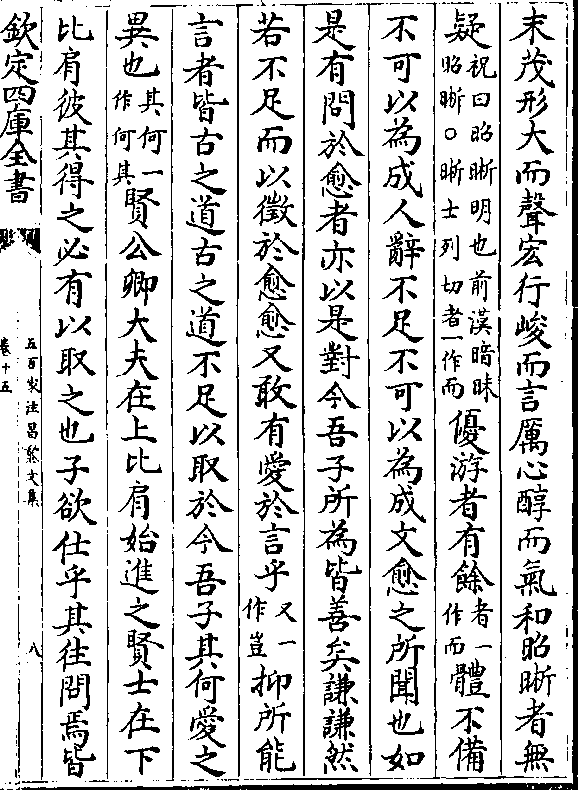 末茂形大而聲宏行峻而言厲心醇而氣和昭晰者無
疑祝曰昭晰明也前漢暗昧昭晰○晰士列切者一作而優游者有餘者一作而體不備
不可以為成人辭不足不可以為成文愈之所聞也如
是有問於愈者亦以是對今吾子所為皆善矣謙謙然
若不足而以徵於愈愈又敢有愛於言乎又一作豈抑所能
言者皆古之道古之道不足以取於今吾子其何愛之
異也其何一作何其賢公卿大夫在上比肩始進之賢士在下
比肩彼其得之必有以取之也子欲仕乎其往問焉皆
欽定四庫全書
五百家注昌黎文集
卷十五
八